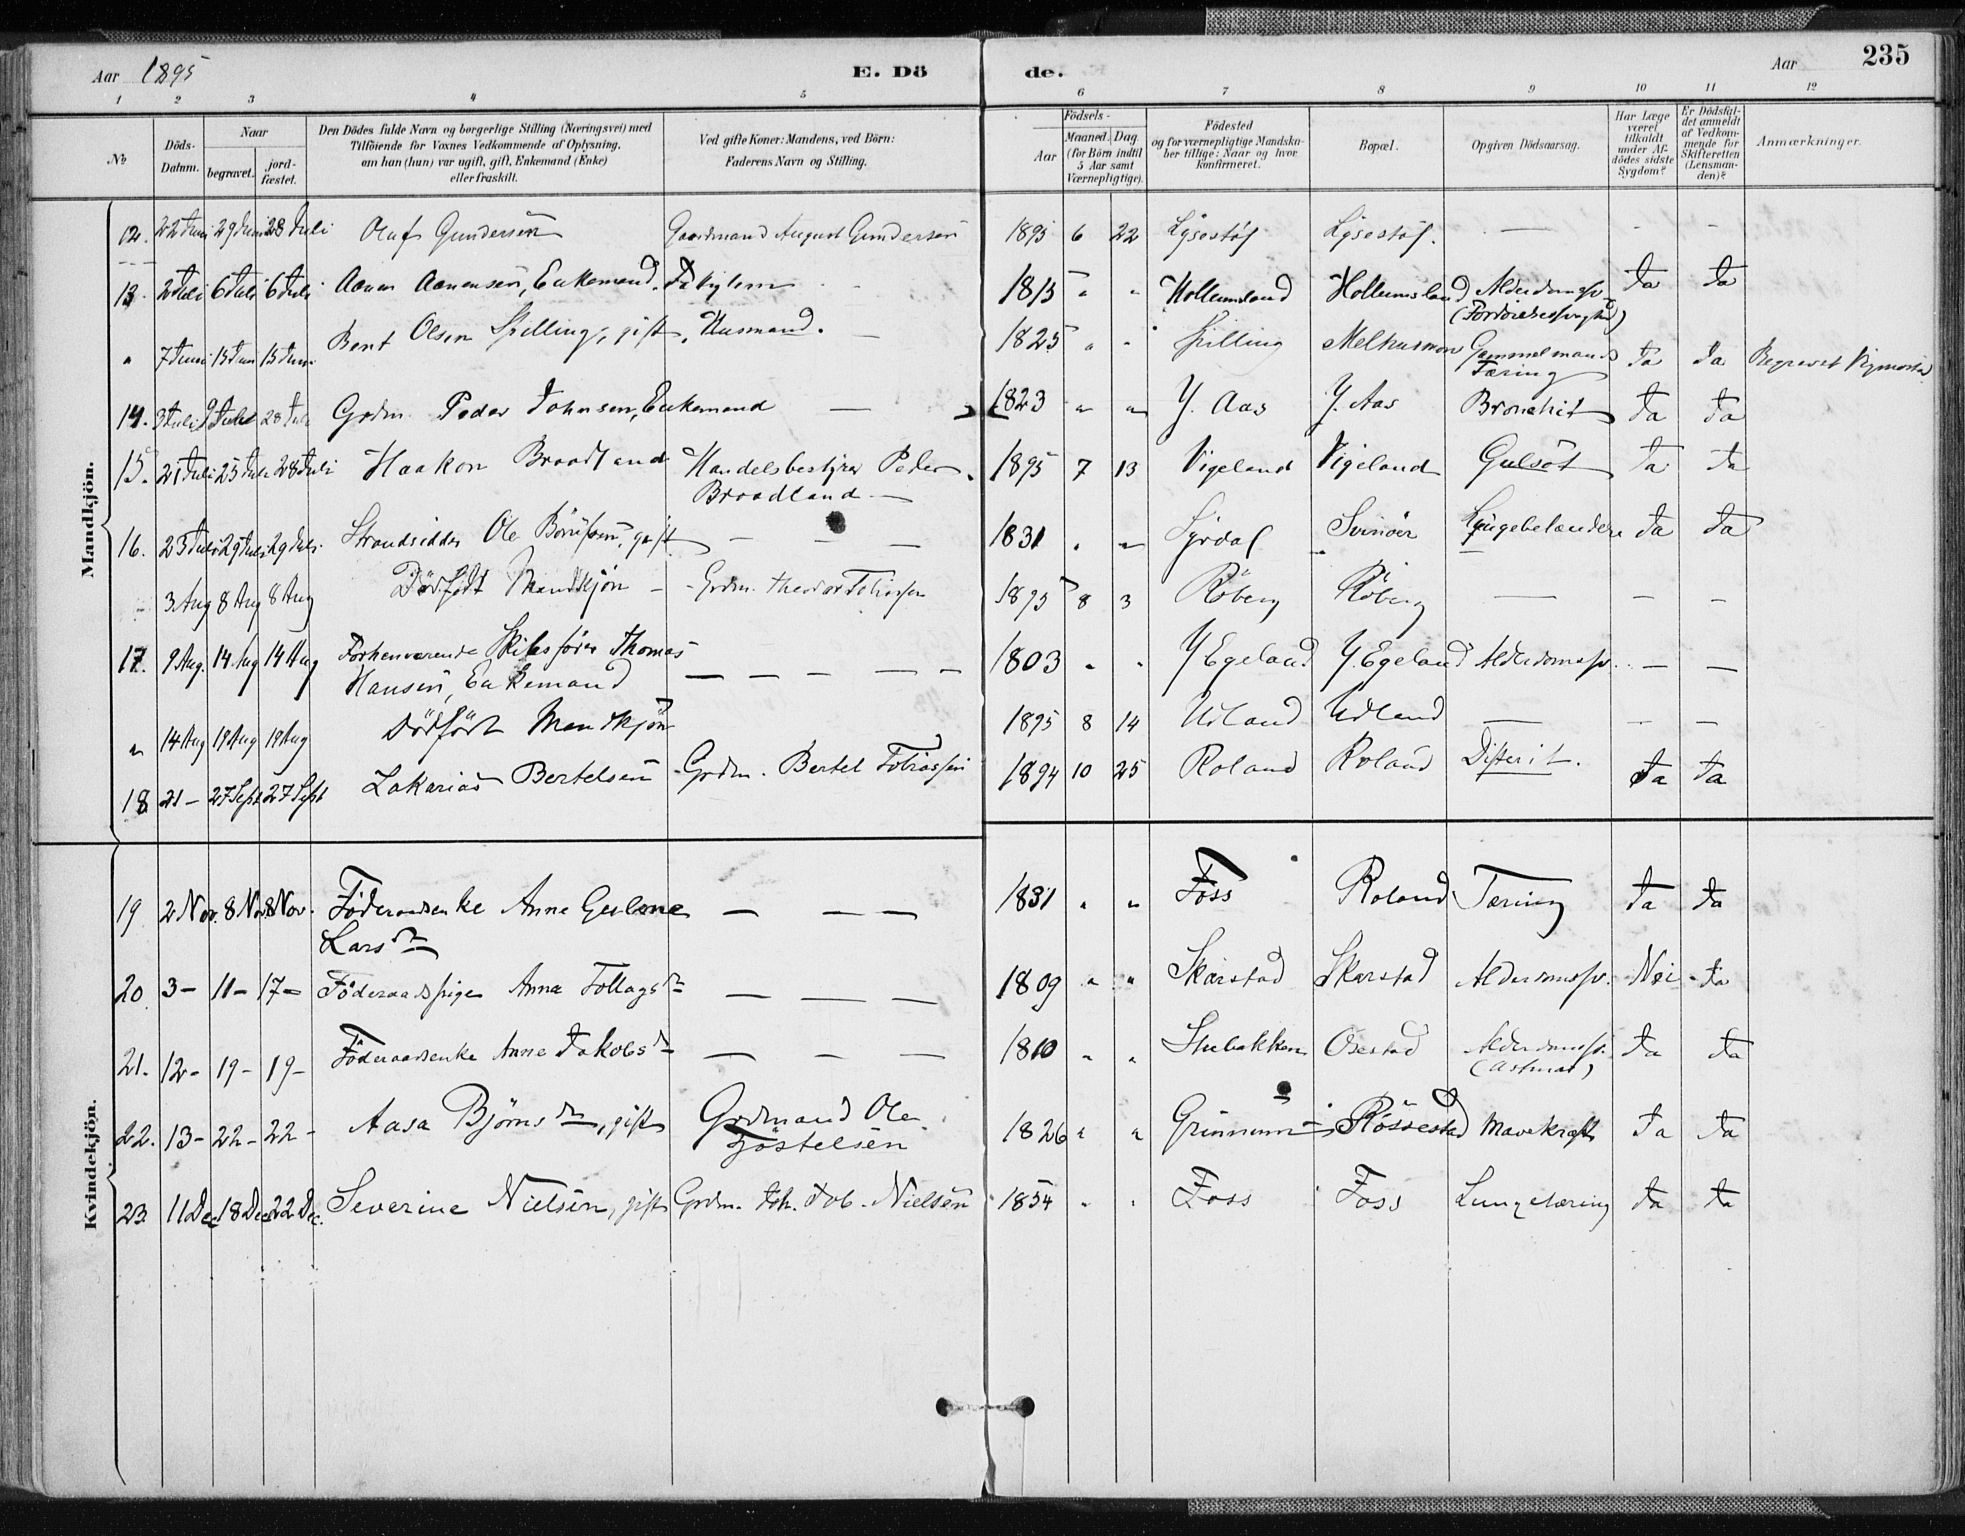 Aar 1895 E. Dö de. Aar 235
1 2 3 4 5 6 7 8 9 10 11 12
No
Döds-Datum.
Naar
begravet. jordfæstet.
Den Dödes fulde Navn og borgerlige Stilling (Næringsvei) med
Tilföiende for Voxnes Vedkommende af Oplysning,
om han (hun) var ugift, gift, Enkemand (Enke)
eller fraskilt.
Ved gifte Koner: Mandens, ved Börn:
Faderens Navn og Stilling.
Födsels-
Aar Maaned. Dag
(for Börn indtil
5 Aar samt
Værnepligtige).
Födested
og for værnepligtige Mandskaber tillige: Naar og hvor
konfirmeret.
Bopæl.
Opgiven Dödsaarsag.
Har Læge
været
tilkaldt
under Afdödes sidste
Sygdom?
Er Dödsfaldet anmeldt
af Vedkommende for
Skifteretten
(Lensmanden)?
Anmærkninger.
Mandkjön.
12. 22 Juni 29 Juni 28 Juli Olaf Gundersen Gaardmand August Gundersen 1895 6 22 Lysestöl Lysestöl. — - -
13. 2 Juli 6 Juli 6 Juli Aanen Aanensen, Enkemand. 1815 " " Hollumsland Hollumsland Alderdomssv. Ja Ja
" 7 Juni 15 Juni 15 Juni Bent Olsen Spilling, gift, Husmand. — 1825 " " Spilling Melhusmon Gammelmands Ja Ja Begravet Vigmostad
Tæring
14. 3 Juli 9 Juli 28 Juli Grdm. Peder Johnsen, Enkemand — 1823 " " Y. Aas Y. Aas Bronchit Ja Ja
15. 21 Juli 25 Juli 28 Juli Haakon Braadland Handelsbestyrer Peder 1895 7 13 Vigeland Vigeland Gulsot Ja Ja
Braadland —
16. 23 Juli 29 Juli 29 Juli Strandsidder Ole gift — — — 1831 " " Lyrdal Svinöer Ja Ja
3 Aug 8 Aug 8 Aug Dödfödt Mandkjön — Grdm. Theodor Tobiassen 1895 8 3 Röberg Röberg — — —
17. 9 Aug. 14 Aug 14 Aug Forhenværende Skibsförer Thomas 1803 " " Y Egeland Y. Egeland Alderdomssv. — —
Hansen, Enkemand — — — — —
" 14 Aug 19 Aug 19 Aug Dödfödt Mandkjön 1895 8 14 Udland Udland — — —
18 21 — 27 Sept 27 Sept Zakarias Bertelsen Grdm. Bertel Tobiassen 1894 10 25 Roland Roland Difterit. Ja Ja
Kvindekjön.
19 2 Nov. 8 Nov. 8 Nov. Föderaadsenke Anne — — — 1831 " " Foss Roland Tæring Ja Ja
Larsdr
20 3 — 11 — 17 — Föderaadspige Anna Tollagsdr — — — 1809 " " Skarstad Skarstad Alderdomssv. Nei Ja
21. 12 — 19 — 19 — Föderaadsenke Anne Jakobsdr — — — 1810 " " Stubakken Osestad Alderdomssv. Ja Ja
(Astma)
22. 13 — 22 — 22 — Aasa Björnsdr, gift Grdmand Ole 1826 " " Grinnum Rössestad Mavekræft Ja Ja
Tjöstelsen
23. 11 Dec 18 Dec 22 Dec. Severine Nielsen, gift Grdm. Joh. Tob. Nielsen 1854 " " Foss Foss Lungetæring Ja Ja